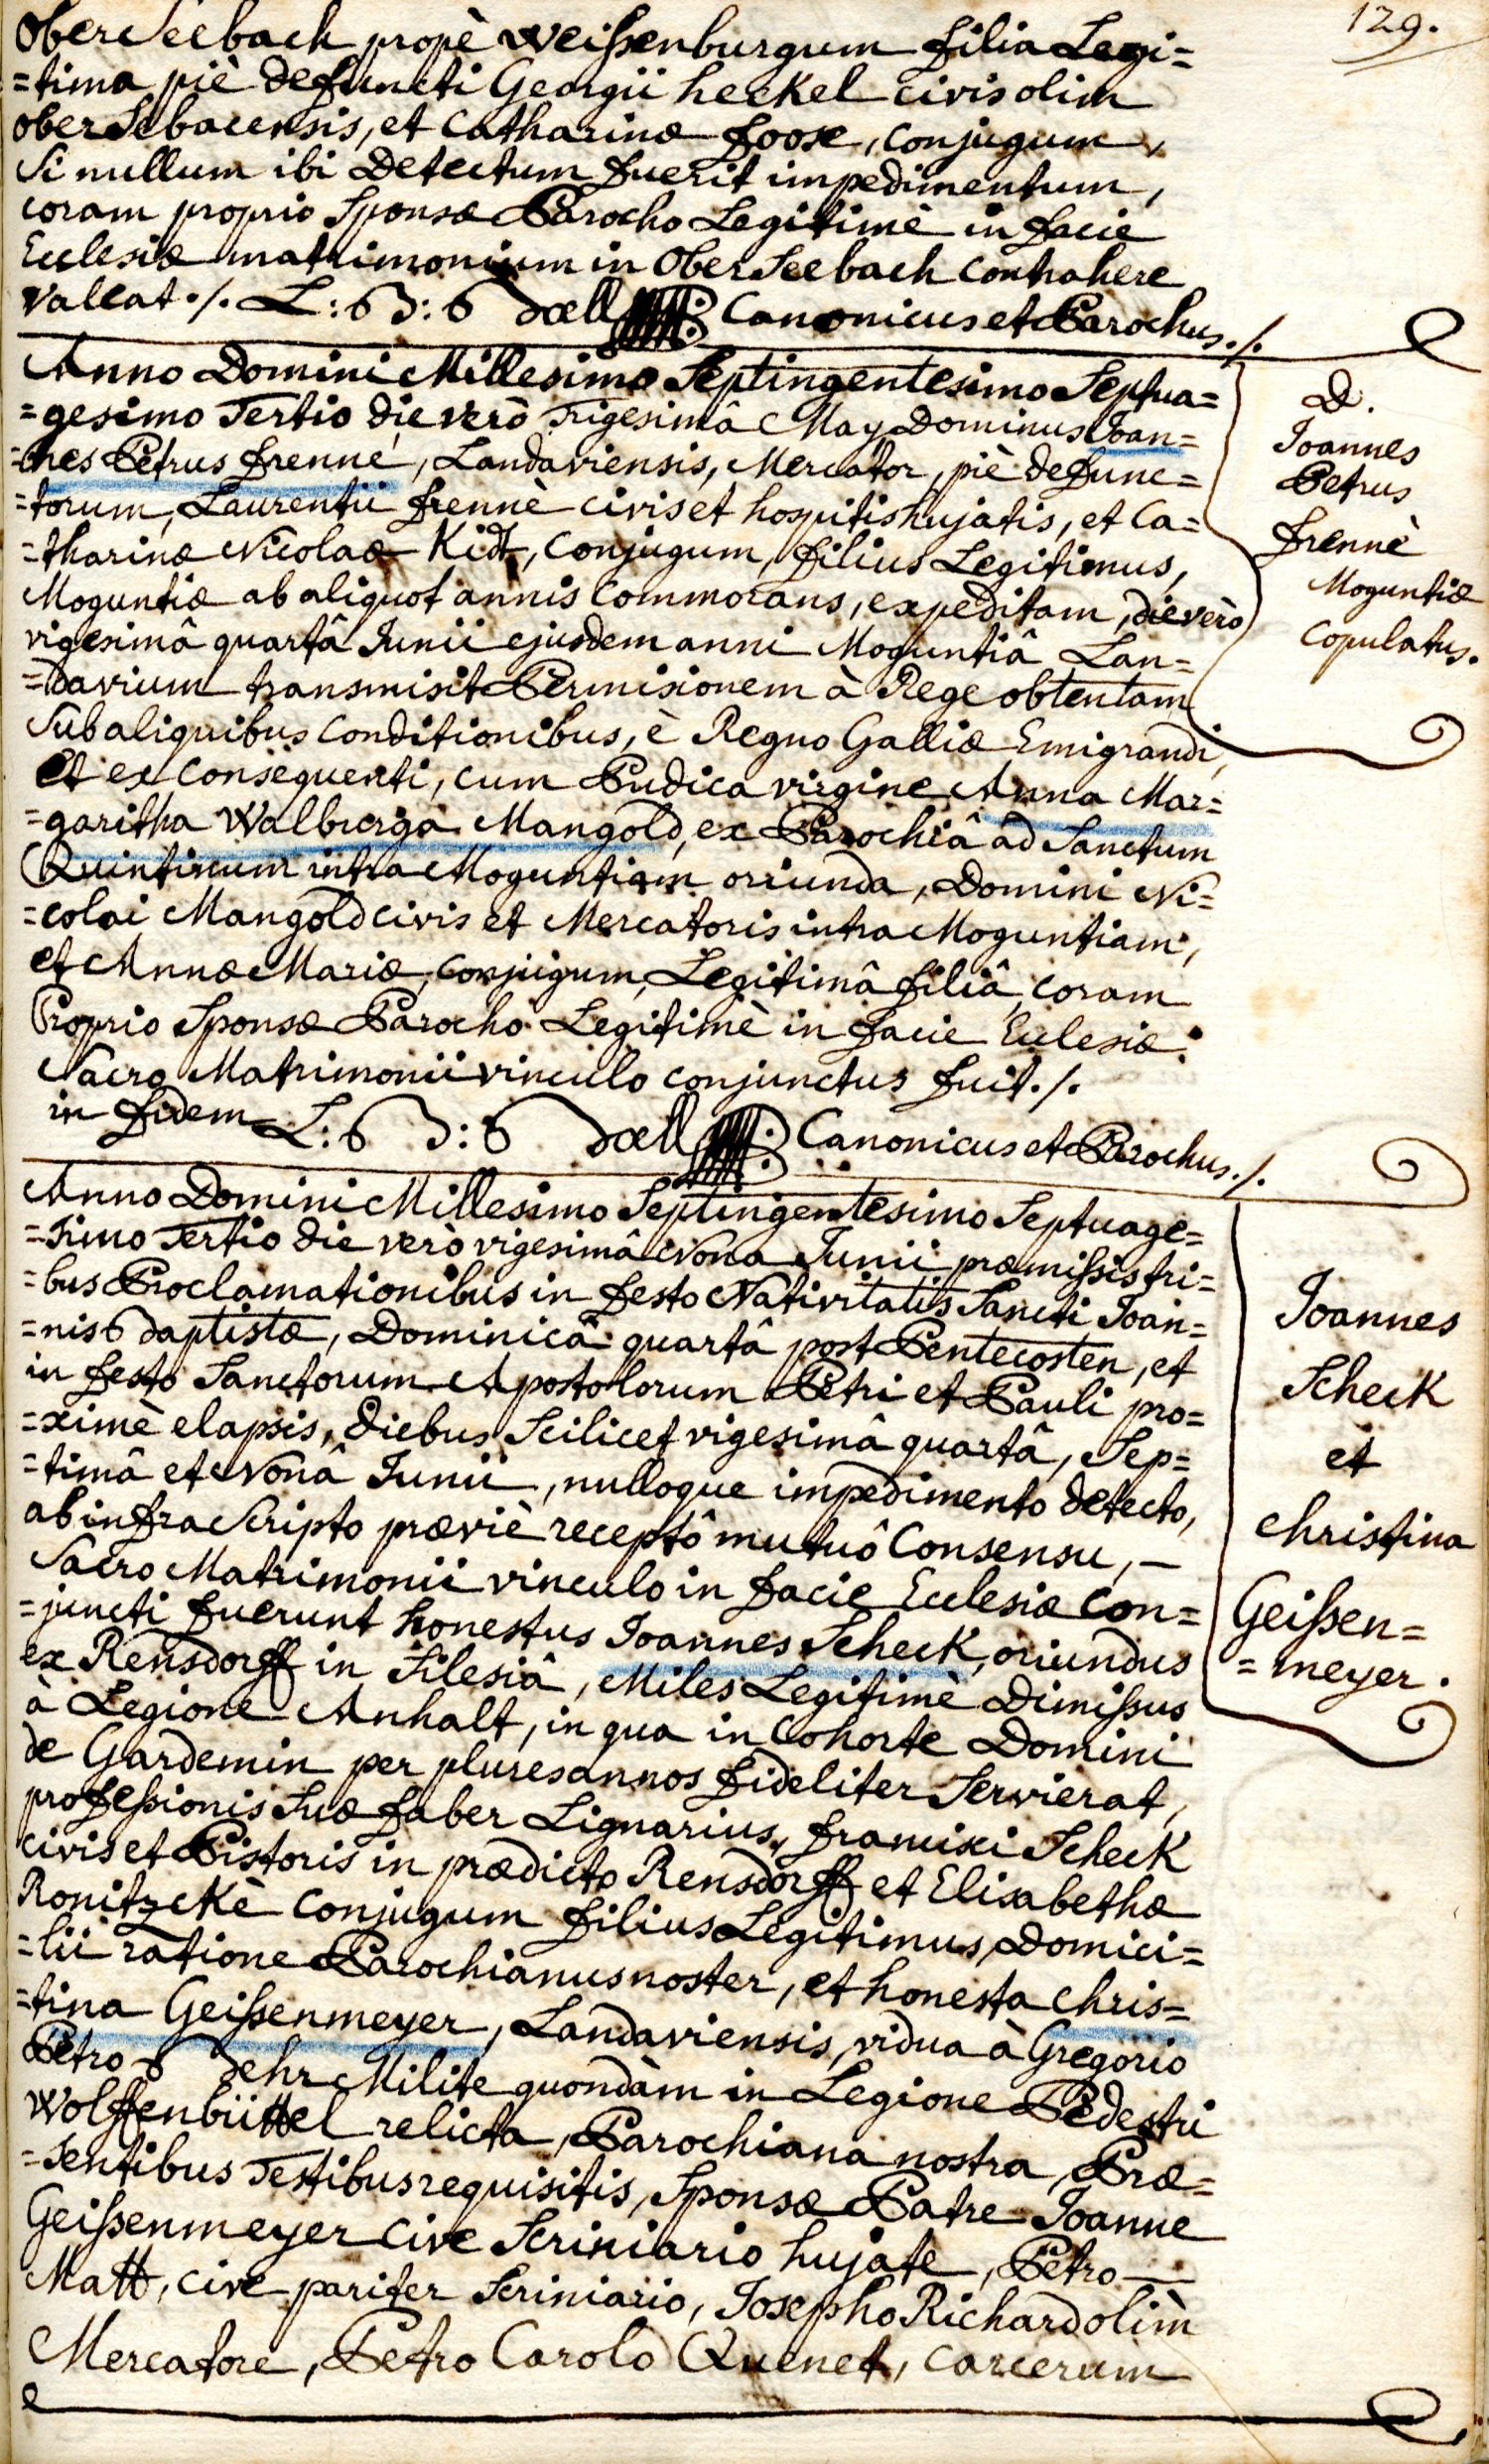 129.
Ober Seebach propè Weißenburgum filia Legi=
=tima piè defuncti Georgii heckel civis olim
ober Sebacensis, et Catharinæ foose, Conjugum,
Si nullum ibi Detectum fuerit impedimentum,
coram proprio Sponsæ Parocho Legitimè in facie
Ecclesiæ matrimonium in Ober Seebach Contrahere
valeat ./. L: B: Bœll Canonicus et Parochus ./.
Anno Domini Millesimo Septingentesimo Septua=
=gesimo Tertio die verò Trigesimâ May Dominus Joan=
=nes Petrus frennè, Landaviensis, Mercator, piè defunc=
=torum, Laurentii frennè civis et hospitis hujatis, et Ca=
=tharinæ Nicolaæ Kidt, Conjugum, filius Legitimus,
Moguntiæ ab aliquot annis Commorans, expeditam, die verò
vigesimâ quartâ Junii ejusdem anni Moguntiâ Lan=
=davium transmisit Permisionem à Rege obtentam
Sub aliquibus Conditionibus, è Regno Galliæ Emigrandi,
Et ex consequenti, cum Pudica virgine Anna Mar=
=garitha Walburga Mangold, ex Parochiâ ad Sanctum
Quintinum intra Moguntiam oriunda, Domini Ni=
=colai Mangold civis et Mercatoris intra Moguntiam,
et Annæ Mariæ, Conjugum, Legitimâ filiâ, coram
Proprio Sponsæ Parocho Legitimè in facie Ecclesiæ
Sacro Matrimonii vinculo conjunctus fuit ./.
in fidem L: B: Bœll Canonicus et Parochus ./.
D.
Joannes
Petrus
frennè
Moguntiæ
Copulatus.
Anno Domini Millesimo Septingentesimo Septuage=
=simo Tertio die verò vigesimâ Nona Junii præmißis tri=
=bus Proclamationibus in festo Nativitatis Sancti Joan=
=nis Baptistæ, Dominicâ quartâ post Pentecosten, et
in festo Sanctorum Apostolorum Petri et Pauli pro=
=ximè elapsis, diebus Scilicet vigesimâ quartâ, Sep=
=timâ et Nonâ Junii, nulloque impedimento detecto,
ab infra Scripto præviè receptô mutuô Consensu, —
Sacro Matrimonii vinculo in facie Ecclesiæ Con=
=juncti fuerunt honestus Joannes Scheck, oriundus
ex Rensdorff in Silesiâ, Miles Legitimè Dimißus
à Legione Anhalt, in qua in Cohorte Domini
de Gardemin per plures annos fideliter Servierat,
profeßionis Suæ faber Lignarius, francisci Scheck
civis et Pistoris in prædicto Rensdorff et Elisabethæ
Ronitzckè Conjugum filius Legitimus, Domici=
=lii ratione Parochianus noster, et honesta Chris=
=tina Geißenmeyer, Landaviensis, vidua à Gregorio
Petro Behr Milite quondàm in Legione Pedestri
Wolffenbüttel relicta, Parochiana nostra, Præ=
=sentibus Testibus requisitis, Sponsæ Patre Joanne
Geißenmeyer Cive Scriniario hujate, Petro —
Matt, cive pariter Scriniario, Josepho Richard olim
Mercatore, Petro Carolo Quenet, carcerum
Joannes
Scheck
et
Christina
Geißen=
=meyer.